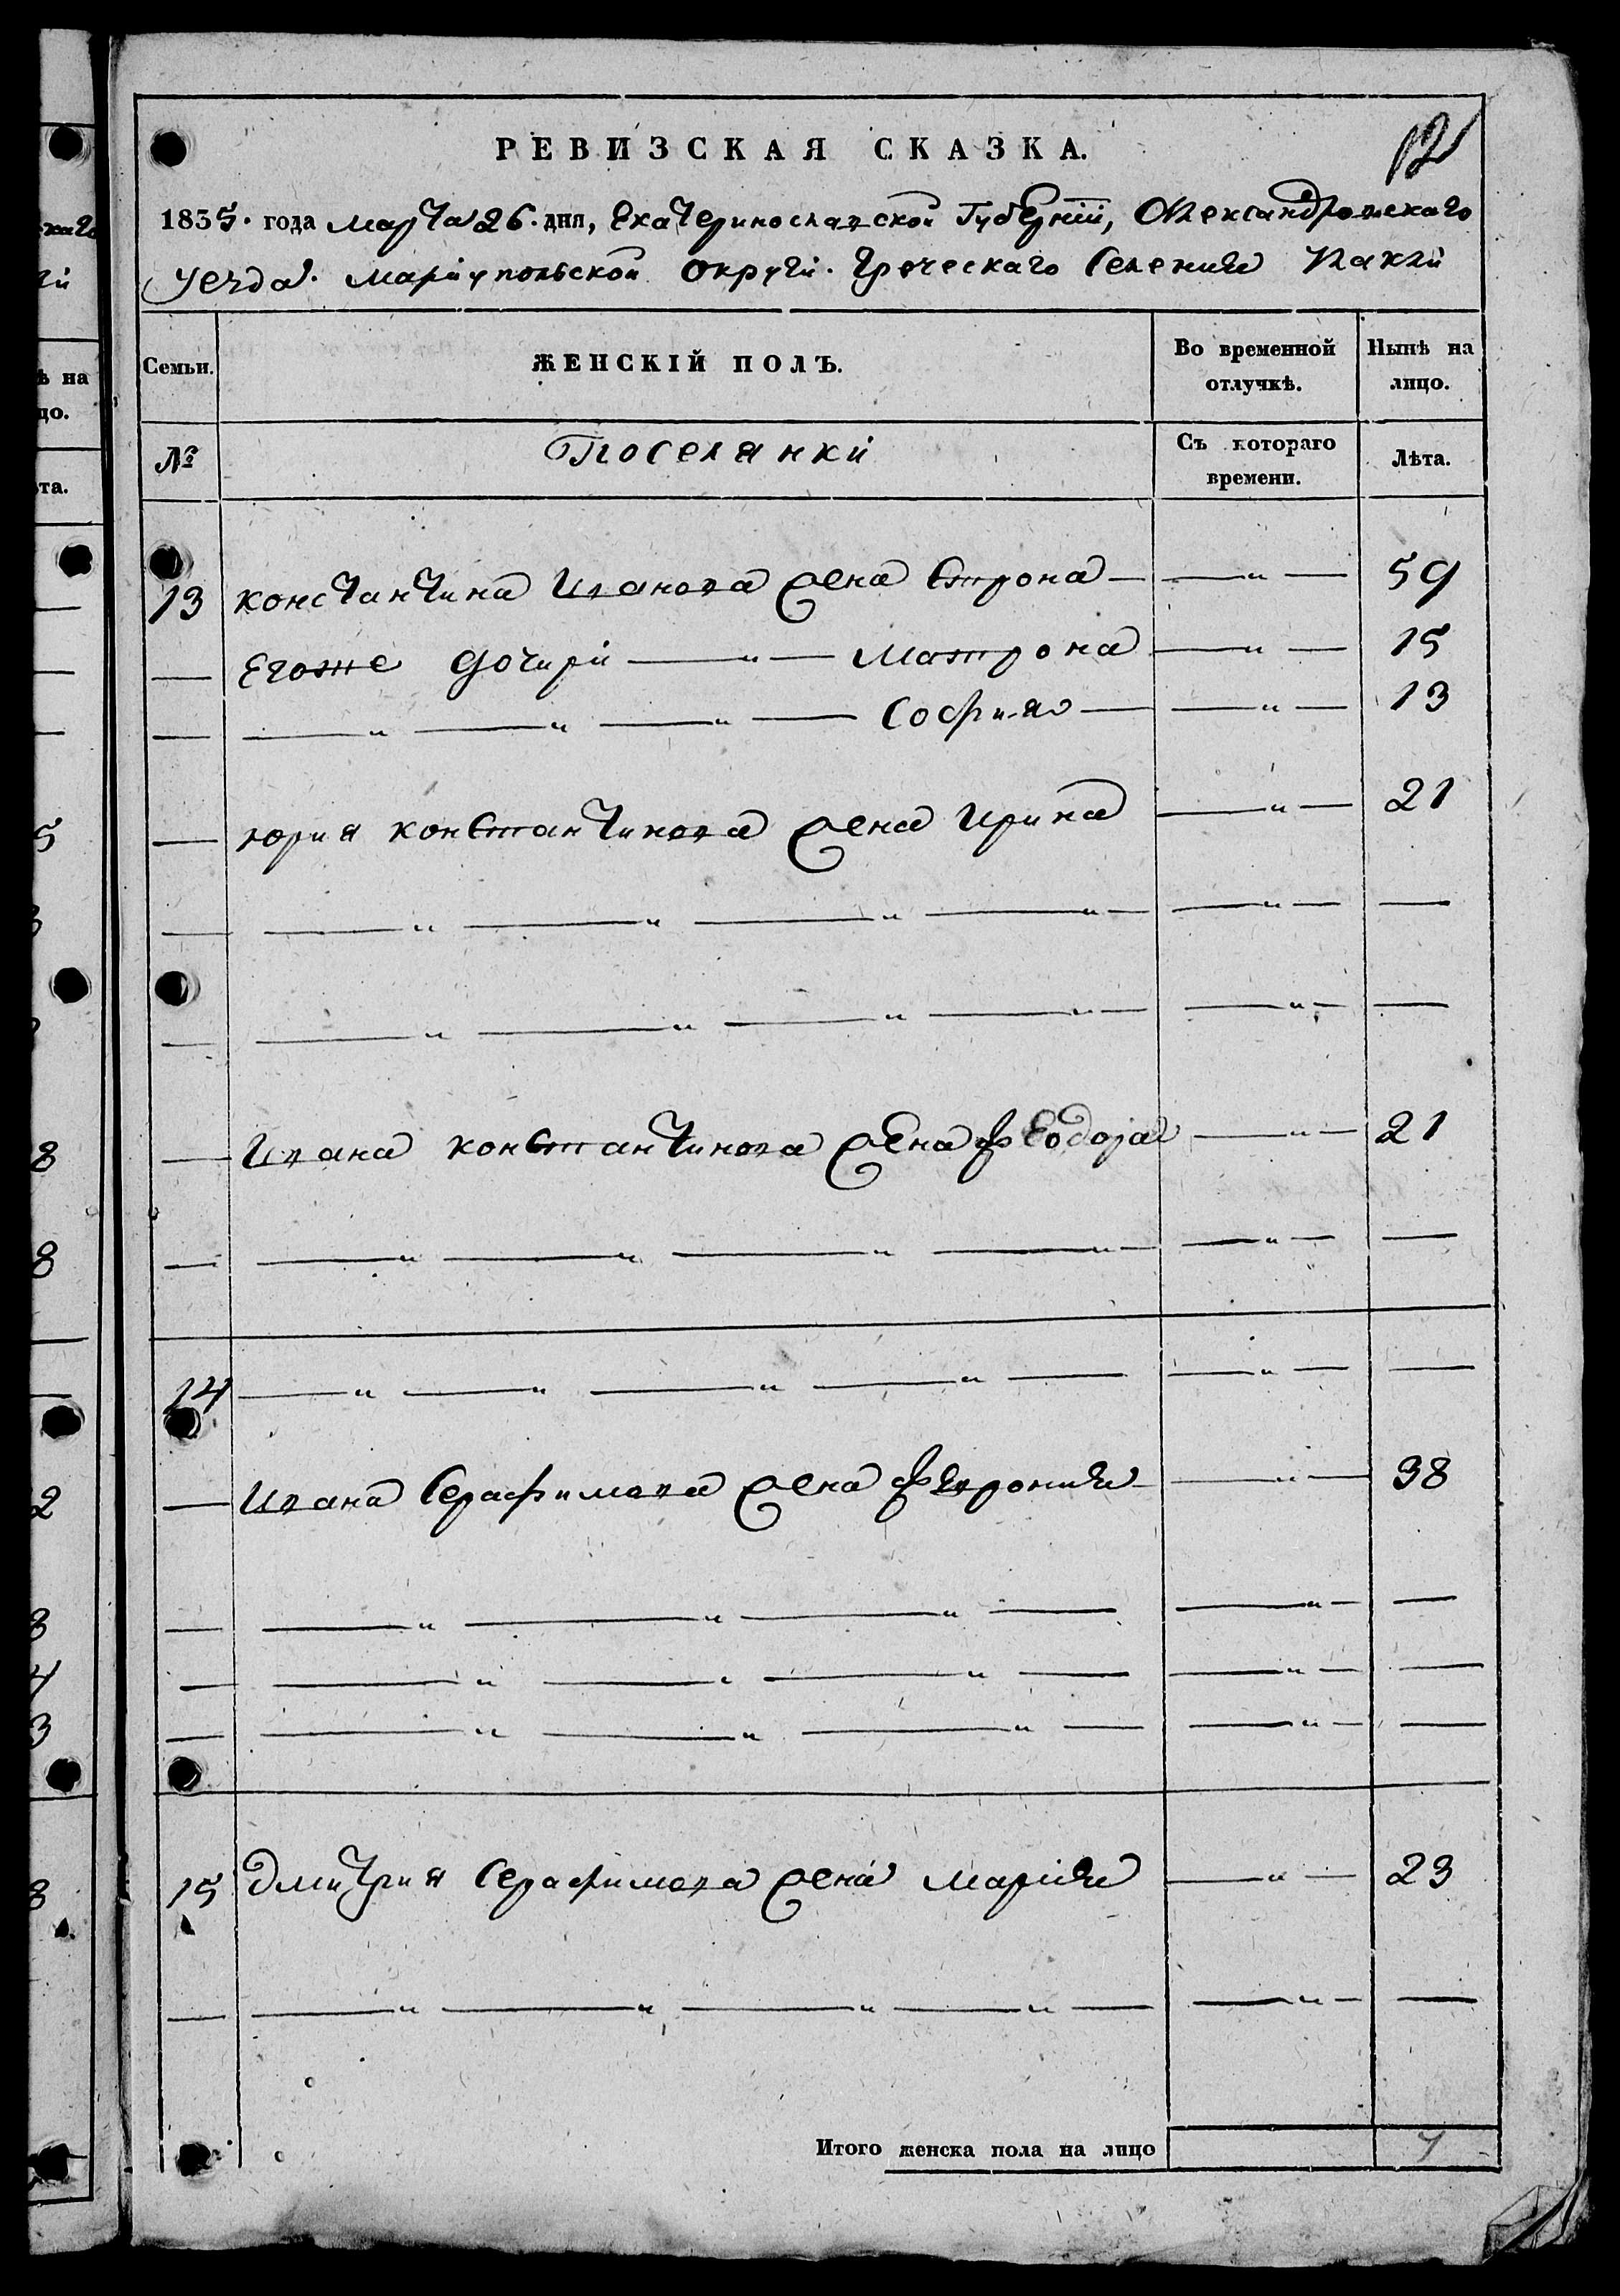 РЕВИЗСКАЯ СКАЗКА.
12
1835. года марта 26. дня, Екатеринославской Губерніи, Александровскаго
уезда. Маріупольской округи. греческаго Селения
Семьи. ЖЕНСКІЙ ПОЛЪ. Во временной отлучкѣ. Нынѣ на лицо.
№ Поселянки Съ котораго времени. Лѣта.
13 Константина Иванова жена — — „ — 59
— Егоже дочири — „ — Матрона — „ — 15
— — „ — „ — „ — София — — „ — 13
— Юрия Константинова жена Ирина — „ — 21
— — „ — „ — „ — „ — — „ — —
— — „ — „ — „ — „ — — „ — —
— Ивана Константинова жена Феодора — „ — 21
— — „ — „ — „ — „ — — „ — —
14 — „ — „ — „ — „ — — „ — —
— Ивана Серафимова жена Феврония — „ — 38
— — „ — „ — „ — — „ — —
— — „ — „ — „ — — „ — —
— — „ — „ — „ — — „ — —
15 Дмитрия Серафимова жена Мария — „ — 23
— — „ — „ — „ — „ — — „ — —
Итого женска пола на лицо 7